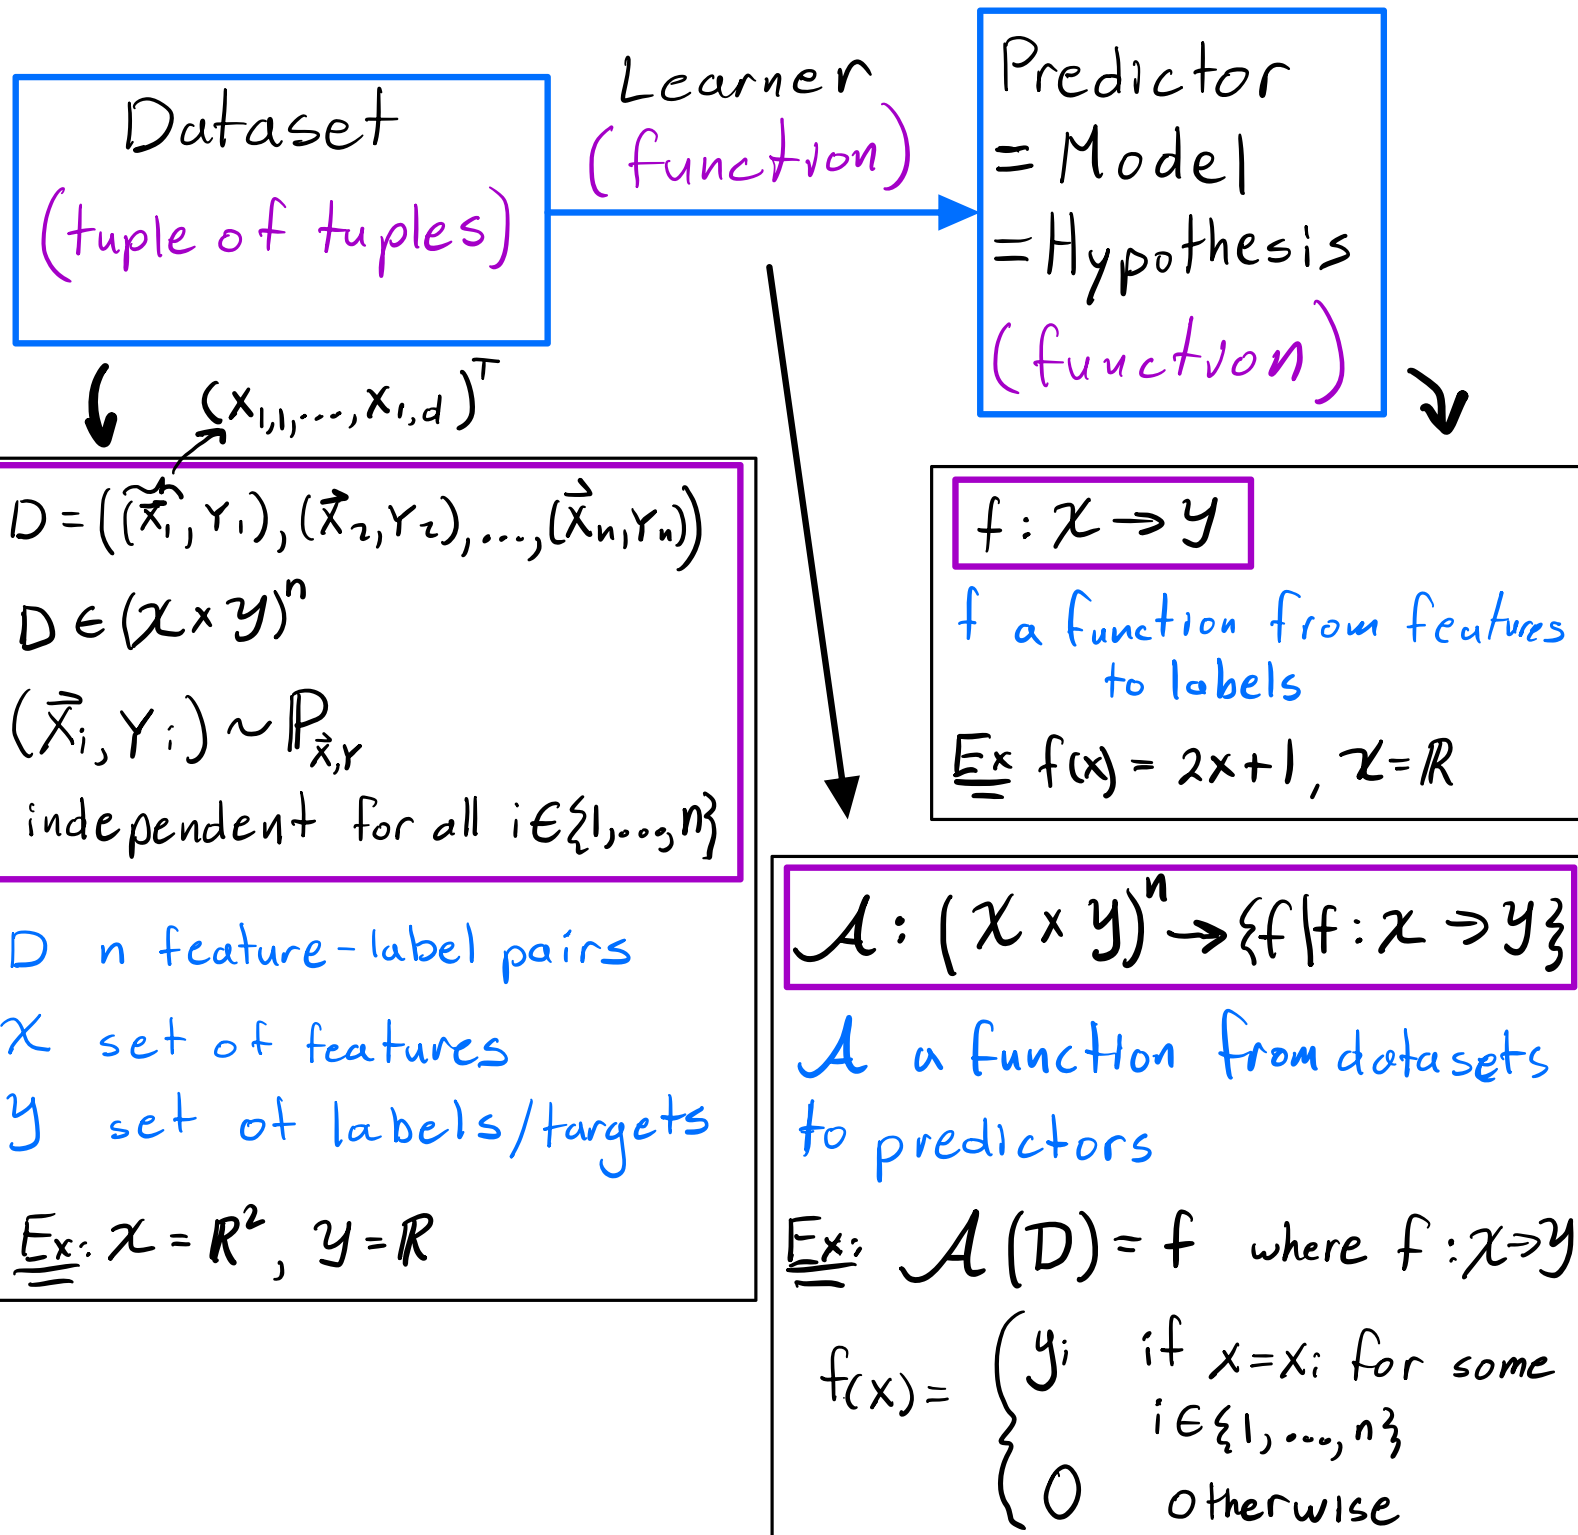 Dataset
(tuple of tuples)
Learner
(function)
Predictor
= Model
= Hypothesis
(function)
(x₁,₁, ..., x₁,d)ᵀ
D = ((X⃗₁, Y₁), (X⃗₂, Y₂), ..., (X⃗ₙ, Yₙ))
D ∈ (𝒳 × 𝒴)ⁿ
(X⃗ᵢ, Yᵢ) ~ ℙ_X⃗,Y
independent for all i∈{1,...,n}
D n feature-label pairs
𝒳 set of features
𝒴 set of labels/targets
Ex: 𝒳 = ℝ², 𝒴 = ℝ
f : 𝒳 → 𝒴
f a function from features
to labels
Ex f(x) = 2x+1, 𝒳 = ℝ
𝒜 : (𝒳 × 𝒴)ⁿ → {f | f : 𝒳 → 𝒴}
𝒜 a function from datasets
to predictors
Ex: 𝒜(D) = f where f : 𝒳 → 𝒴
f(x) = { yᵢ if x = xᵢ for some
i∈{1, ..., n}
0 otherwise